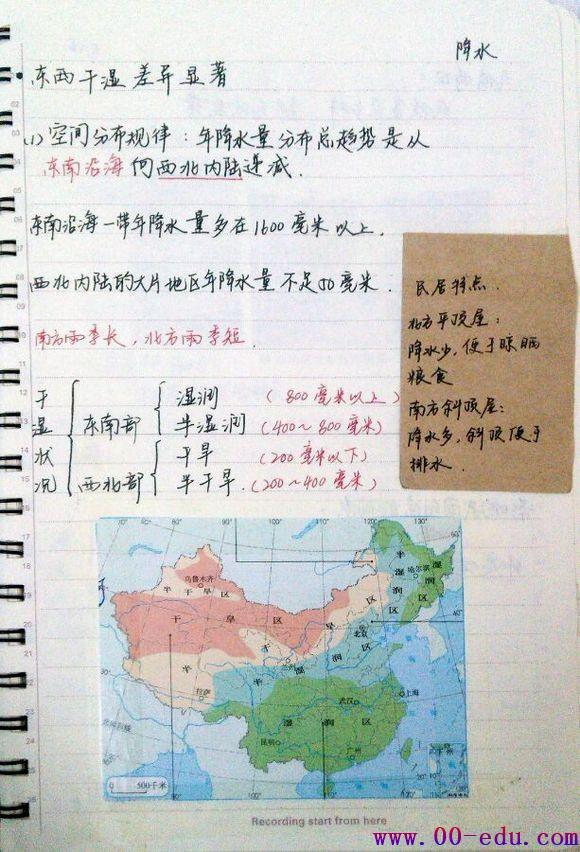 降水
东西干湿差异显著
(1)空间分布规律:年降水量分布总趋势是从
东南沿海向西北内陆递减.
东南沿海一带年降水量多在1600毫米以上.
西北内陆的大片地区年降水量不足50毫米.
南方雨季长,北方雨季短.
民居特点.
北方平顶屋:
降水少,便于晾晒
粮食
南方斜顶屋:
降水多,斜顶便于
排水.
干湿状况
东南部
湿润 (800毫米以上)
半湿润 (400~800毫米)
西北部
干旱 (200毫米以下)
半干旱.(200~400毫米)
70° 80° 90° 100° 110° 120° 130°
乌鲁木齐
哈尔滨
半干旱区
干旱区
半湿润区
北京
兰州
半干旱区
半湿润区
拉萨
武汉
上海
湿润区
昆明
广州
0 500千米
Recording start from here
www.00-edu.com